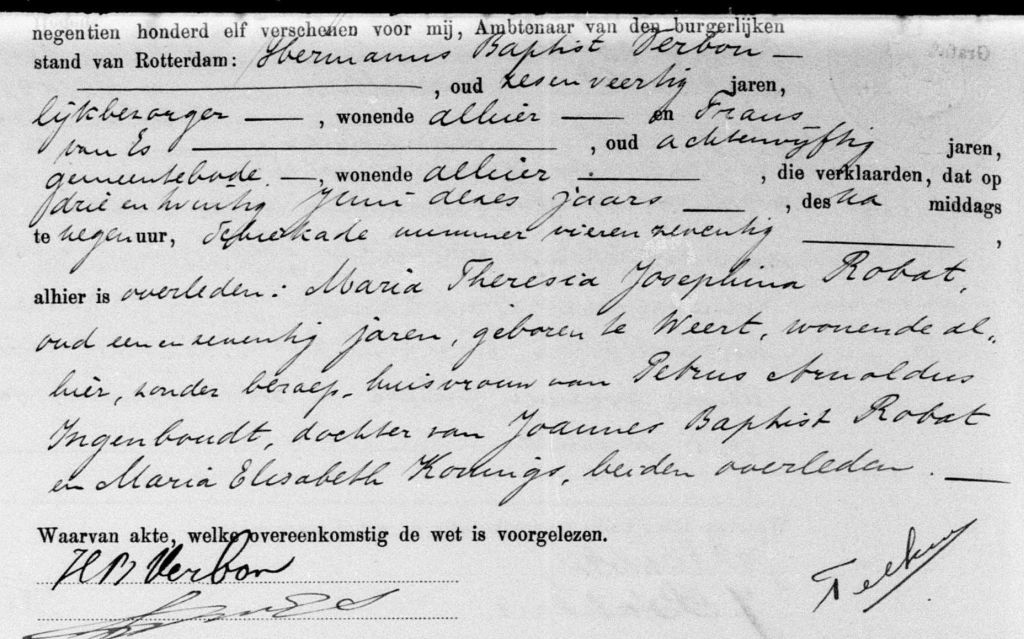 negentien honderd elf verschenen voor mij, Ambtenaar van den burgerlijken
stand van Rotterdam: Hermanus Baptist Verbon —
—, oud zesenveertig jaren,
lijkbezorger —, wonende alhier — en Frans
van Es —, oud achtenvijftig jaren,
gemeentebode —, wonende alhier —, die verklaarden, dat op
drie en twintig Juni dezes jaars —, des na middags
te negen uur, nummer vierenzeventig —,
alhier is overleden: Maria Theresia Josephina Robat,
oud een en zeventig jaren, geboren te Weert, wonende al-
hier, zonder beroep, huisvrouw van Petrus Arnoldus
Ingenboudt, dochter van Joannes Baptist Robat
en Maria Elisabeth Konings, beiden overleden. —
Waarvan akte, welke overeenkomstig de wet is voorgelezen.
HB Verbon